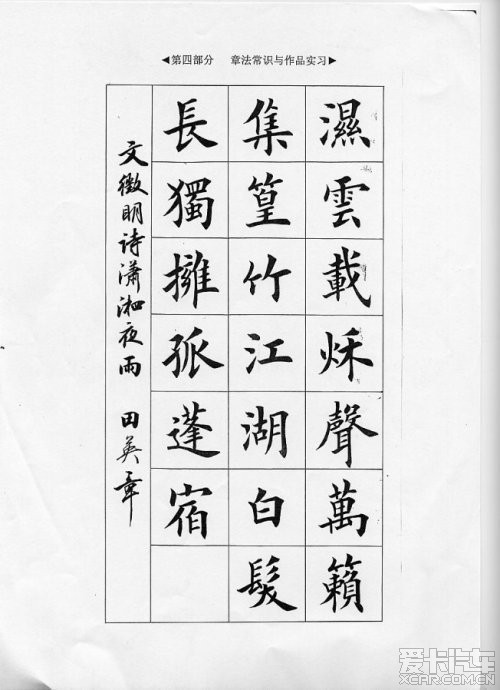 ◀第四部分 章法常识与作品实习▶
濕雲載秌聲萬籟
集篁竹江湖白髮
長獨擁孤蓬宿
文徵明诗潇湘夜雨 田英章
爱卡汽车
XCAR.COM.CN